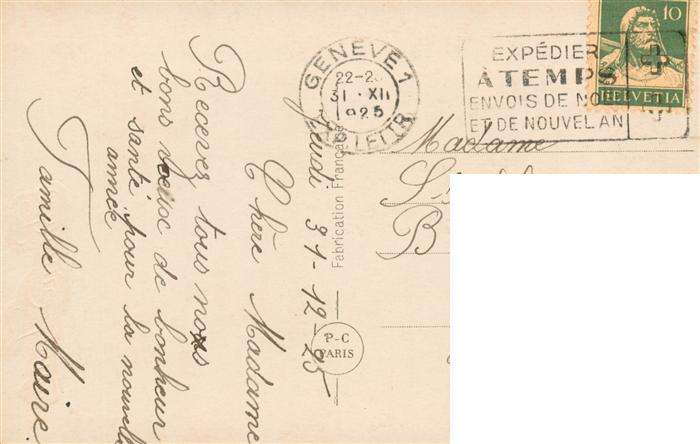 GENEVE 1
22-2
31.XII
1925
EXP. LETTR.
EXPÉDIER
À TEMPS
ENVOIS DE NO
ET DE NOUVEL AN
10
HELVETIA
Jeudi 31-12-25
Chère Madame
Recevez tous nos
bons voeux de bonheur
et santé pour la nouvelle
année
Famille Maire
Fabrication Française
P-C
PARIS
Madame
B